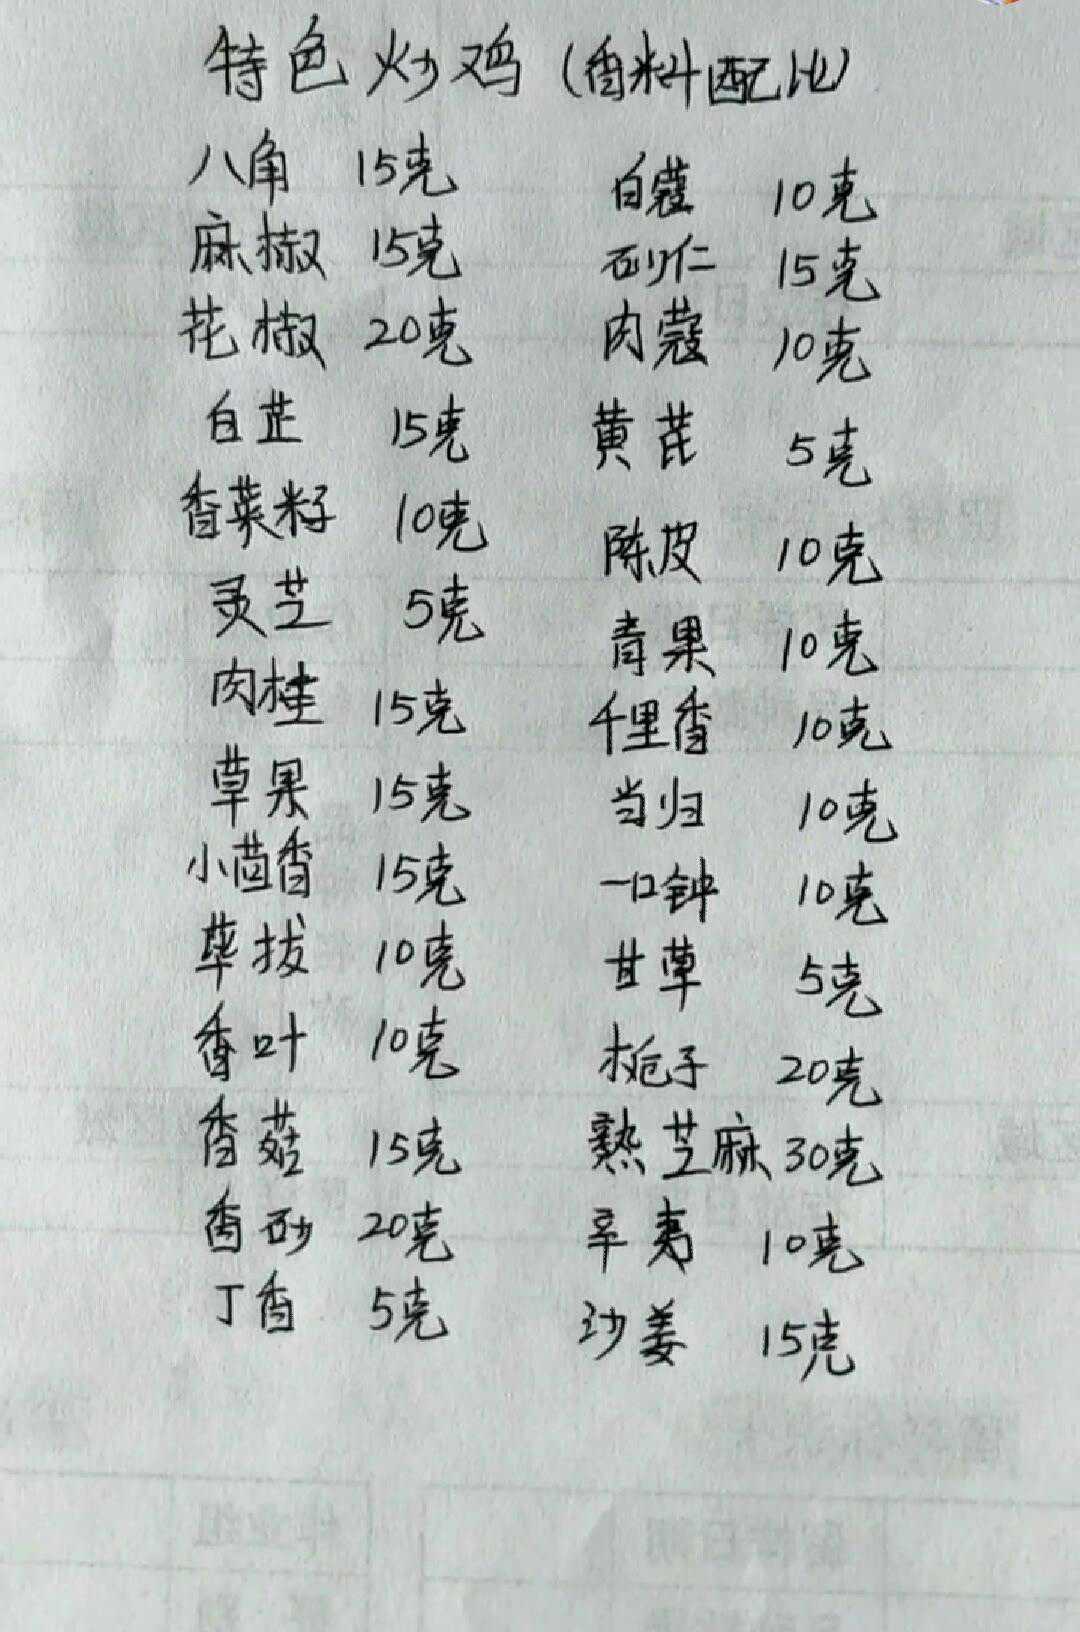 特色炒鸡(香料配比)
八角 15克
麻椒 15克
花椒 20克
白芷 15克
香菜籽 10克
灵芝 5克
肉桂 15克
草果 15克
小茴香 15克
荜拔 10克
香叶 10克
香菇 15克
香砂 20克
丁香 5克
白蔻 10克
砂仁 15克
肉蔻 10克
黄芪 5克
陈皮 10克
青果 10克
千里香 10克
当归 10克
一口钟 10克
甘草 5克
栀子 20克
熟芝麻 30克
辛夷 10克
沙姜 15克